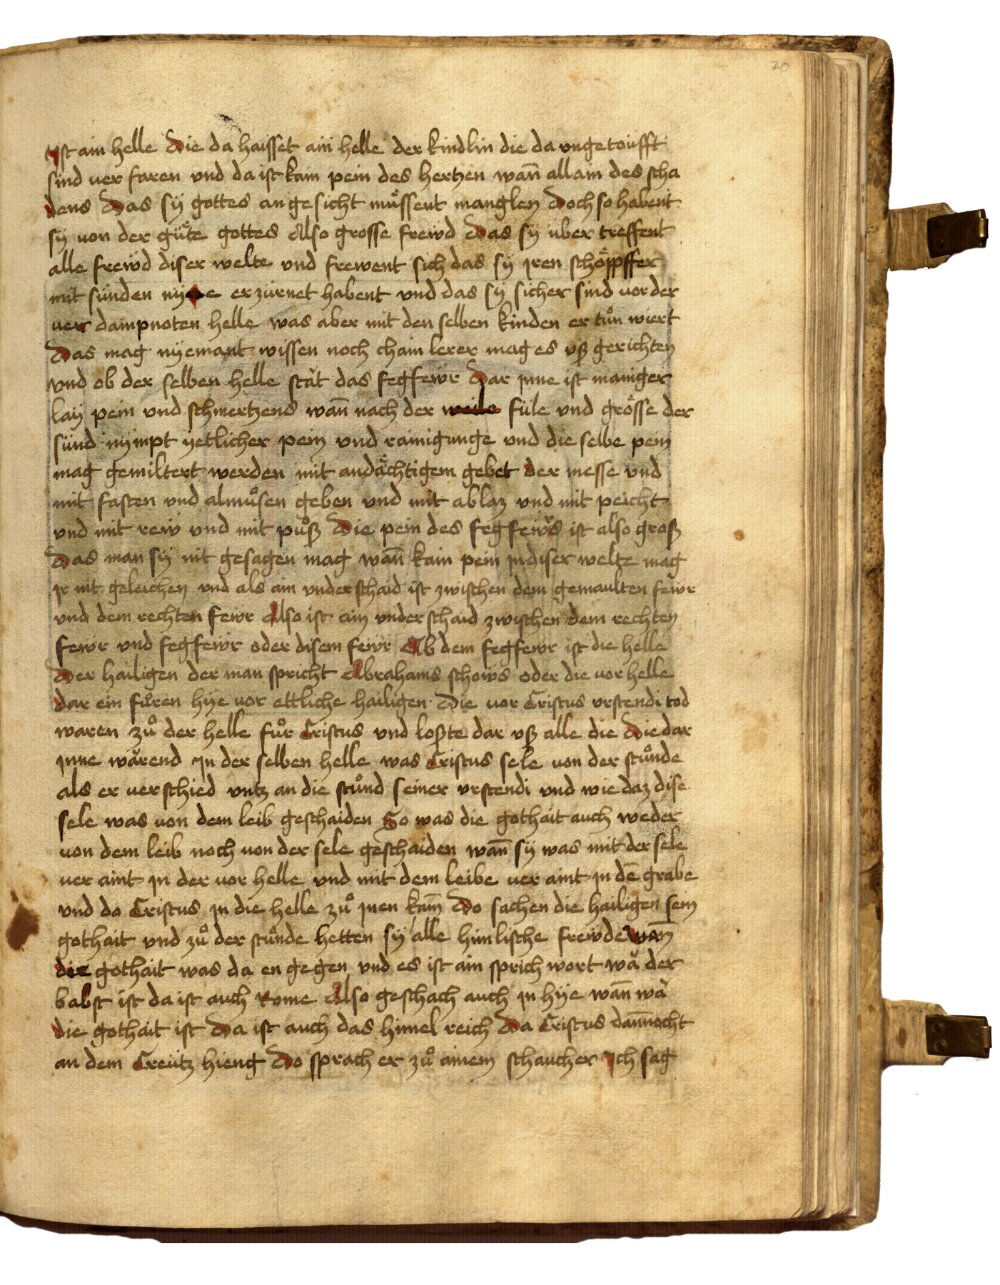 70
Ist ain helle Die da haisset ain helle der kindlin die da ungetoufft
sind ver faren und da ist kain pein des hertzen wan̄ allain des scha
dens Das sÿ gottes an gesicht mu̍ssent manglen Doch so habent
sÿ von der gu̍te gottes Also grosse frewd Das sÿ uber treffent
alle frewd diser welte und frewent sich das sÿ iren schöpffer
mit sünden nÿ e erzürnet habent und das sÿ sicher sind vor der
ver dampnoten helle was aber mit den selben kinden er tůn wiert
Das mag nÿemant wissen noch chain lerer mag es uß gerichten
und ob der selben helle stät das fegfewr Dar jnne ist maniger
lay pein und schmertzens wan̄ nach der füle und grösse der
sünd nÿmpt yetlicher pein und rainigunge und die selbe pein
mag gemiltert werden mit andächtigem gebet der messe und
mit fasten und almůsen geben und mit ablaz und mit peicht
und mit rew und mit půß Die pein des fegfewrs ist also groß
Das man sÿ nit gesagen mag wan̄ kain pein jn diser welte mag
jr nit geleichen und als ain underschaid ist zwischen dem gemaulten fewr
und dem rechten fewr Also ist ain under schaid zwischen dem rechten
fewr und fegfewr oder disem fewr Ob dem fegfewr ist die helle
Der hailigen der man spricht Abrahams schows oder die vor helle
dar ein fůren hÿe vor ettliche hailigen Die vor Cristus urstendi tod
waren zů der helle fůr Cristus und loßte dar uß alle die Die dar
jnne wärend jn der selben helle was Cristus sele von der stůnde
als er ver schied untz an die stůnd seiner urstendi und wie daz dise
sele was von dem leib geschaiden So was die gothait auch weder
von dem leib noch von der sele geschaiden wan̄ sÿ was mit der sele
ver aint jn der vor helle und mit dem leibe ver aint jn dē grabe
und do Cristus jn die helle zů jnen kam̄ Do sachen die hailigen sein
gothait und zů der stůnde hetten sÿ alle himlische frewde wan̄
die gothait was da en gegen und es ist ain sprich wort wa der
babst ist da ist auch Rome Also geschach auch jn hÿe wan̄ wa
die gothait ist Da ist auch das himel reich Da Cristus dan̄nocht
an dem Creütz hieng Do sprach er zů ainem schaucher Ich sag